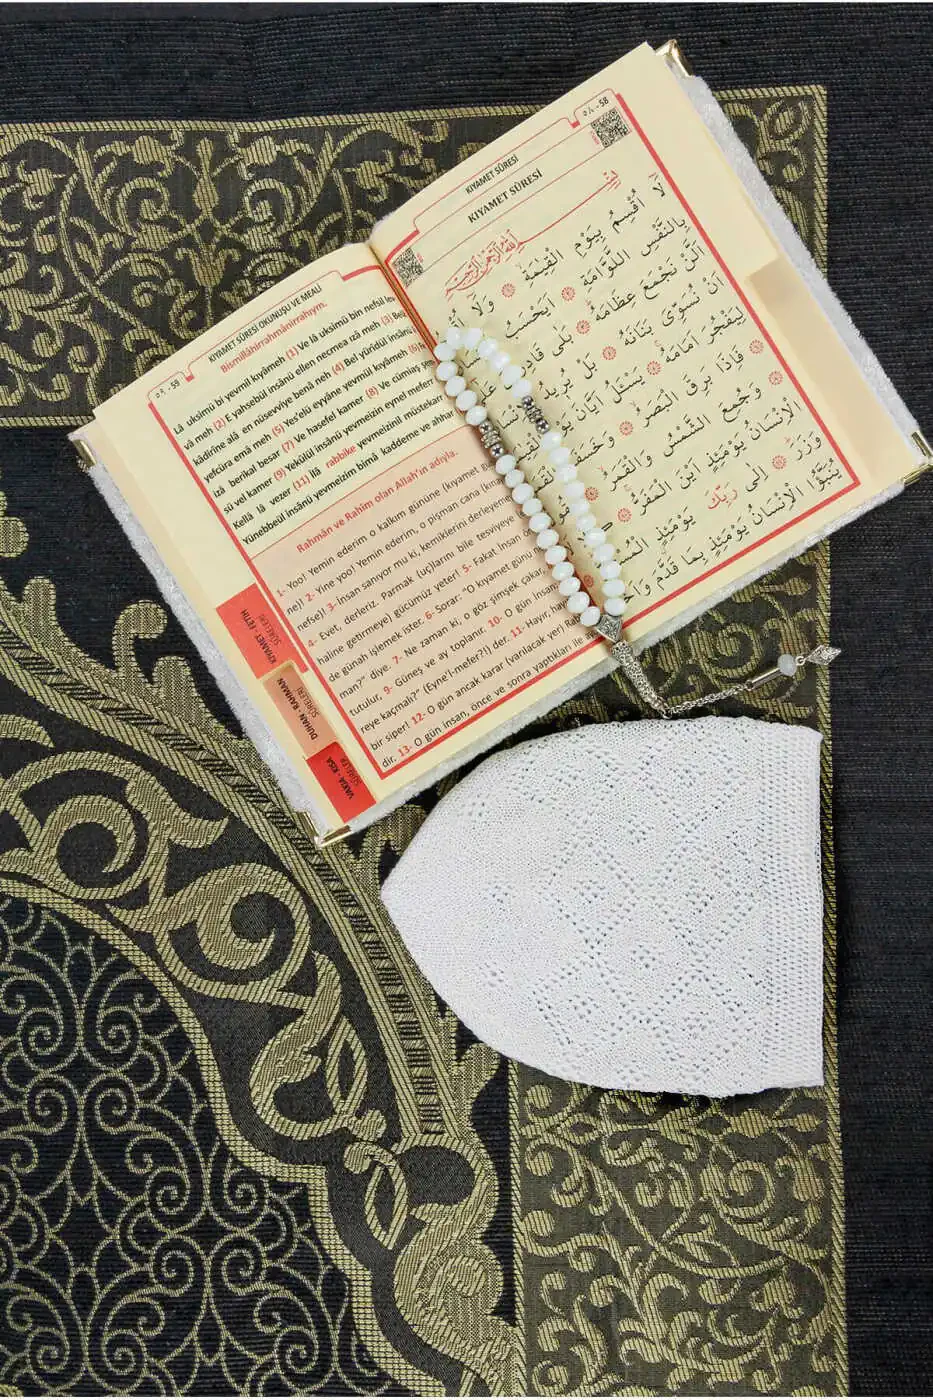 ٥٨ - 58
KIYAMET SÛRESİ
KIYAMET SÛRESİ
بِسْمِ اللّٰهِ الرَّحْمٰنِ الرَّحِيمِ
لَٓا اُقْسِمُ بِيَوْمِ الْقِيٰمَةِ وَلَٓا
بِالنَّفْسِ اللَّوَّامَةِ اَيَحْسَبُ
اَلَّنْ نَجْمَعَ عِظَامَهُ بَلٰى
اَنْ نُسَوِّيَ بَنَانَهُ بَلْ يُرِيدُ
لِيَفْجُرَ اَمَامَهُ يَسْـَٔلُ اَيَّانَ
فَاِذَا بَرِقَ الْبَصَرُ وَخَسَفَ
وَجُمِعَ الشَّمْسُ وَالْقَمَرُ
الْاِنْسَانُ يَوْمَئِذٍ اَيْنَ الْمَفَرُّ
وَزَرَ اِلٰى رَبِّكَ يَوْمَئِذٍ
يُنَبَّؤُا الْاِنْسَانُ يَوْمَئِذٍ بِمَا قَدَّمَ
٥٩ - 59
KIYAMET SÛRESİ OKUNUŞU VE MEALİ
Bismillâhirrahmânirrahıym.
Lâ uksimü bi yevmil kıyâmeh (1) Ve lâ uksimü bin nefsil
vâ meh (2) E yahsebül insânü ellen necmea ızâ meh (3)
kâdirîne alâ en nüsevviye benâ neh (4) Bel yürîdül insânü
yefcüra emâ meh (5) Yes'elü eyyâne yevmül kıyâmeh
izâ berikal besar (7) Ve hasefel kamer (8) Ve cümiaş
sü vel kamer (9) Yekûlül insânü yevmeizin eynel meferr
Kellâ lâ vezer (11) İlâ rabbike yevmeizinil müstekarr
Yünebbeül insânü yevmeizin bimâ kaddeme ve ahhar
Rahmân ve Rahîm olan Allah'ın adıyla.
1- Yoo! Yemin ederim o kalkım gününe (kıyamet
ne)! 2- Yine yoo! Yemin ederim, o pişman cana
nefse)! 3- İnsan sanıyor mu ki, kemiklerini derleyemeyiz
4- Evet, derleriz. Parmak (uç)larını bile tesviyeye
haline getirmeye) gücümüz yeter! 5- Fakat insan
de günah işlemek ister. 6- Sorar: "O kıyamet günü
man?" diye. 7- Ne zaman ki, o göz şimşek çakar,
tutulur, 9- Güneş ve ay toplanır. 10- O gün insan
reye kaçmalı?" (Eyne'l-mefer?!) der. 11- Hayır,
bir siper! 12- O gün ancak karar (varılacak yer)
dir. 13- O gün insan, önce ve sonra yaptıkları ile
KIYAMET - FETİH
SÛRELERİ
DUHAN - RAHMAN
SÛRELERİ
VAKIA - KISA
SÛRELER